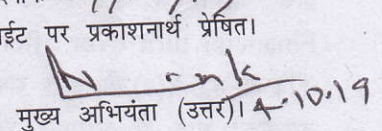 ाईट पर प्रकाशनार्थ प्रेषित।
मुख्य अभियंता (उत्तर)। 4.10.19